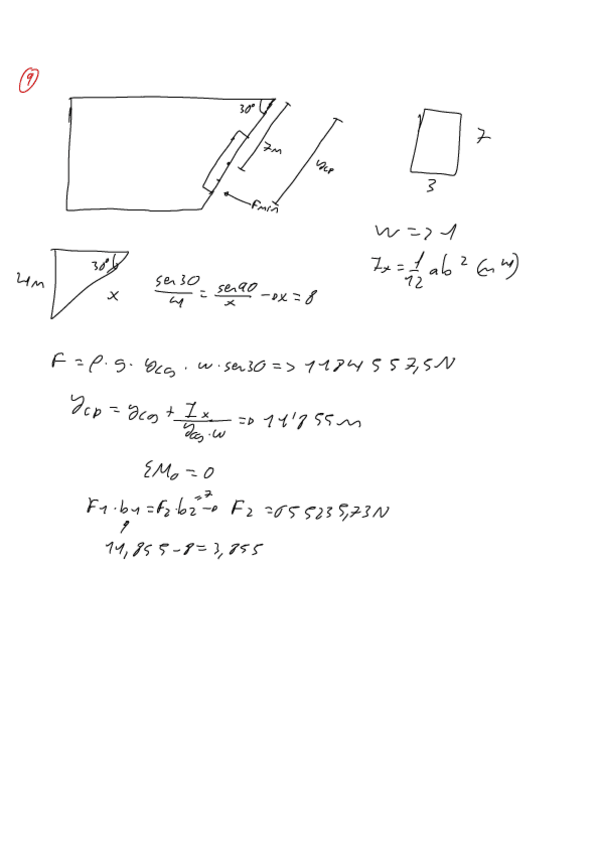 9
30°
7m
ycp
Fmin
7
3
w => 1
Ix = 1/12 ab² (m⁴)
4m
30°
x
sen30/4 = sen90/x → x = 8
F = ρ·g·ycg·w·sen30 => 1184557,5N
ycp = ycg + Ix/(ycg·w) => 11'855m
ΣM₀ = 0
F1·b1 = F2·b2 → F2 = 655235,73N
=7
11,855-8 = 3,855